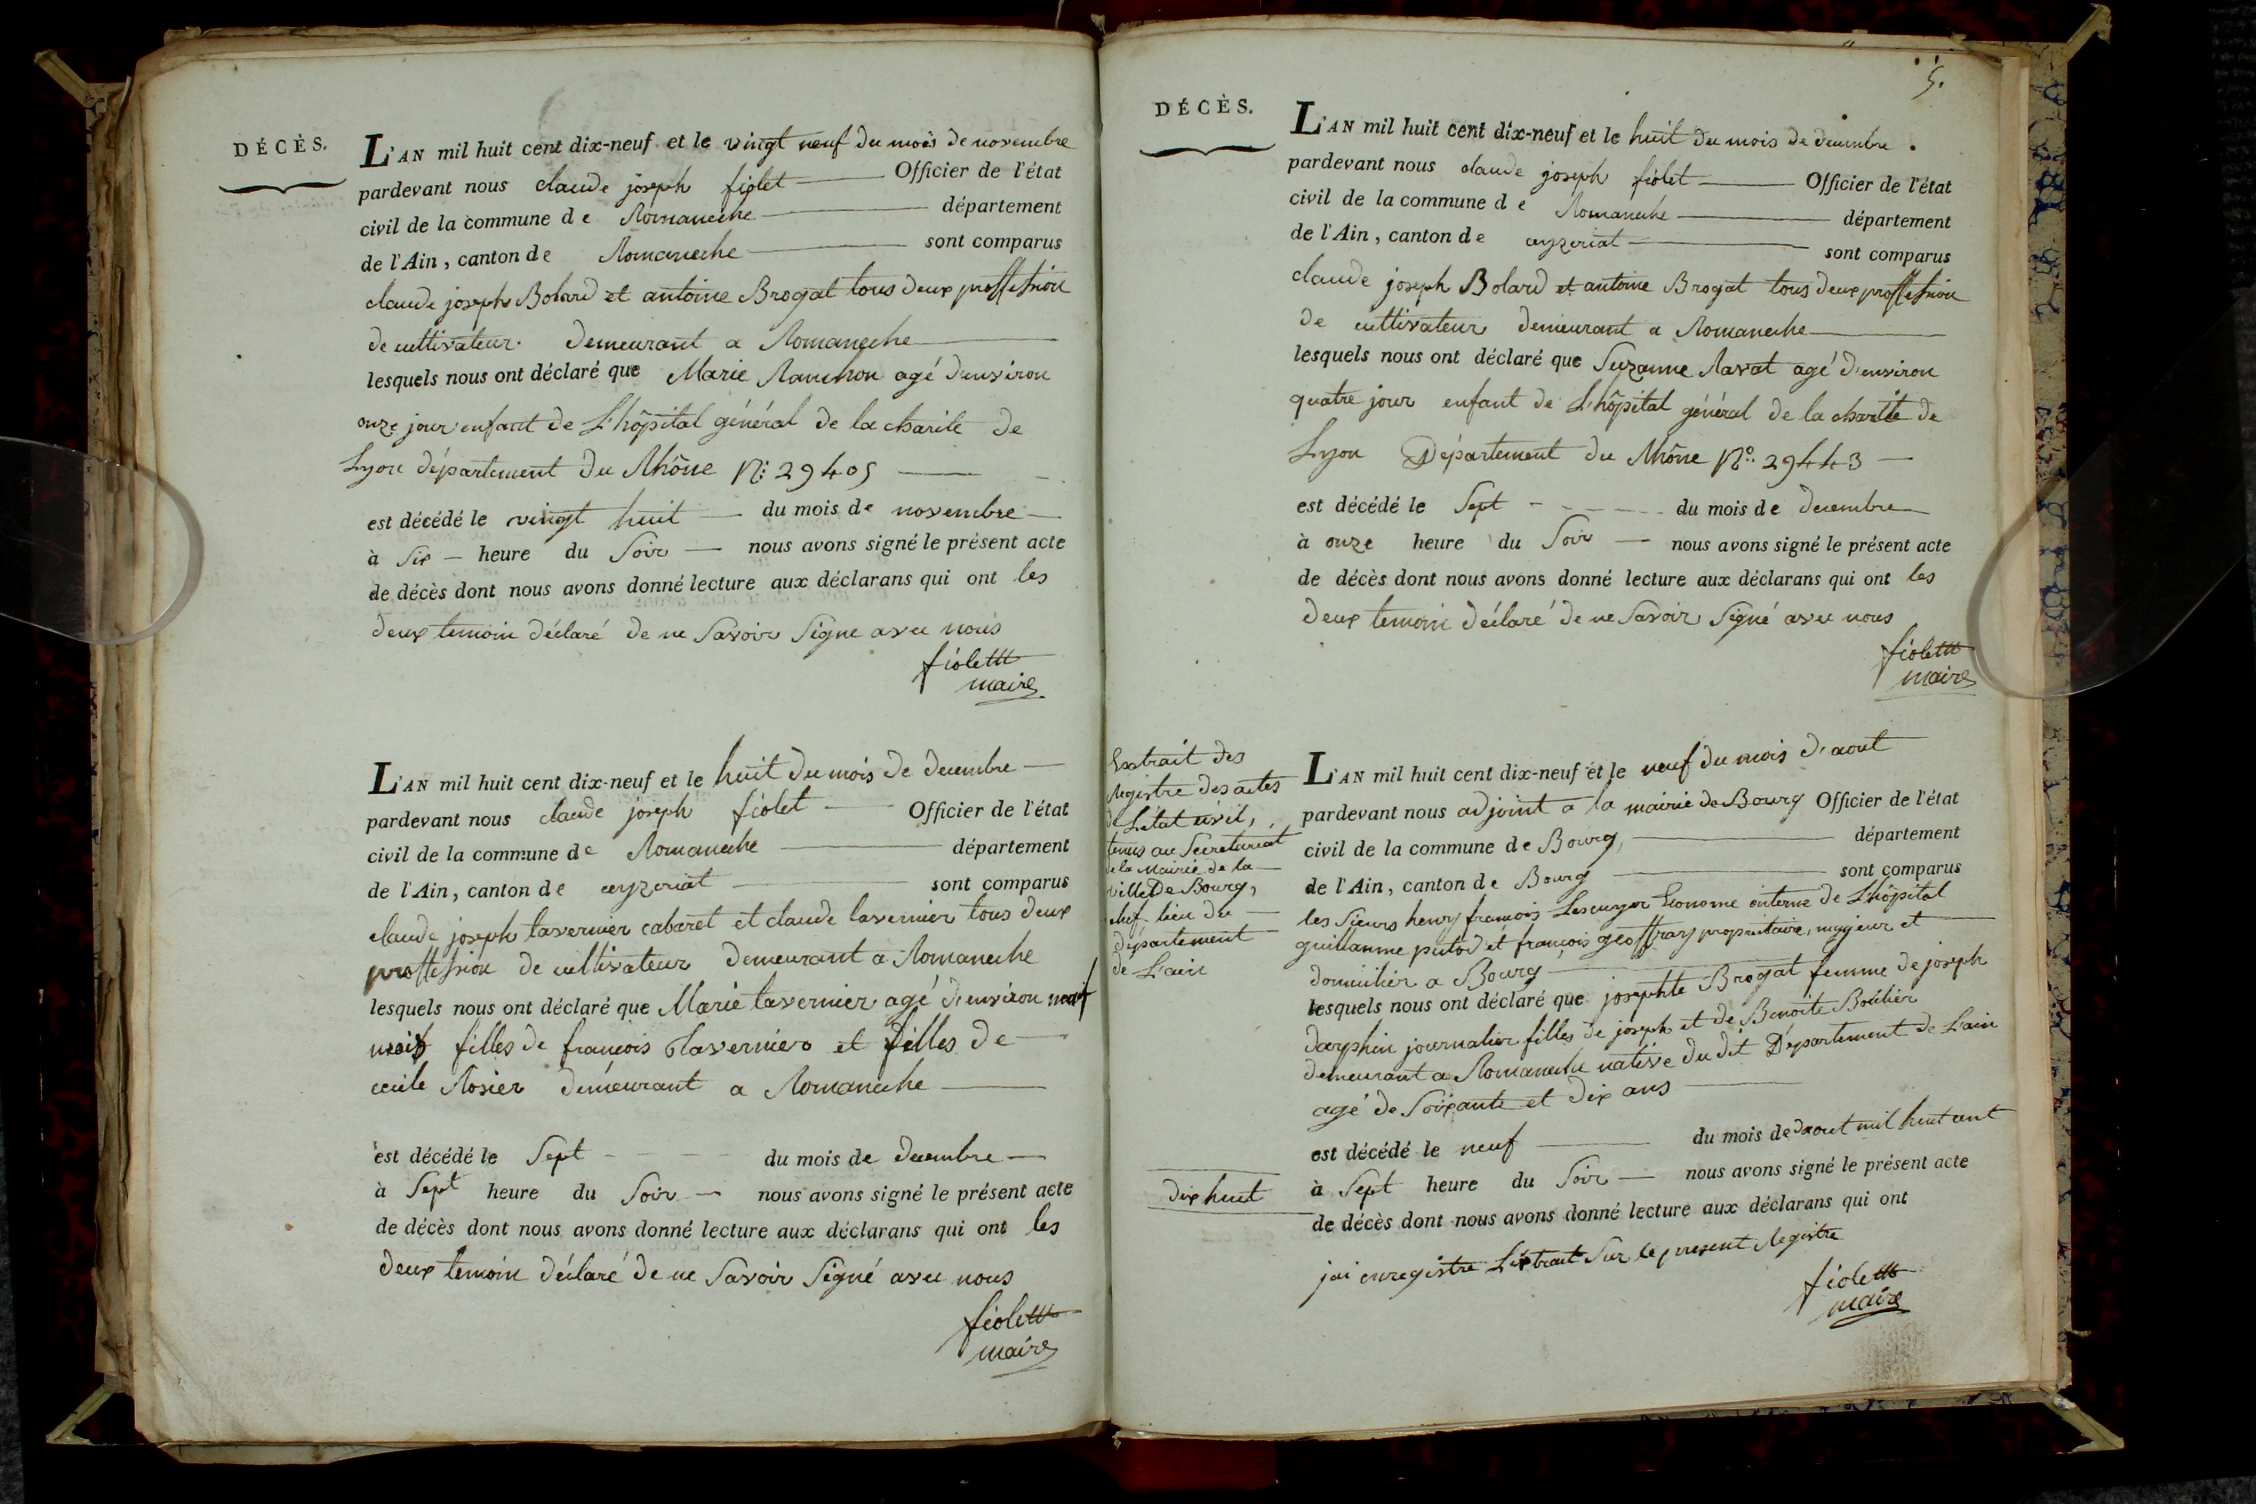 DÉCÈS.
L'AN mil huit cent dix-neuf et le vingt neuf du mois de novembre
pardevant nous claude joseph fiolet Officier de l'état
civil de la commune de Romaneche département
de l'Ain, canton de Romaneche sont comparus
claude joseph Bolard et antoine Brogat tous deux proffession
de cultivateur. demeurant a Romaneche
lesquels nous ont déclaré que Marie agé d'environ
onze jour enfant de L'hôpital général de la charité de
Lyon département du Rhône N°: 29405
est décédé le vingt huit du mois de novembre
à Six heure du Soir nous avons signé le présent acte
de décès dont nous avons donné lecture aux déclarans qui ont les
deux temoin déclaré de ne Savoir Signe avec nous
fiolet
maire
L'AN mil huit cent dix-neuf et le huit du mois de decembre
pardevant nous claude joseph fiolet Officier de l'état
civil de la commune de Romaneche département
de l'Ain, canton de ceyzeriat sont comparus
claude joseph tavernier cabaret et claude tavernier tous deux
proffession de cultivateur demeurant a Romaneche
lesquels nous ont déclaré que Marie tavernier agé d'environ neuf
mois filles de francois Tavernier et filles de
cecile Rosier demeurant a Romaneche
est décédé le Sept du mois de decembre
à Sept heure du Soir nous avons signé le présent acte
de décès dont nous avons donné lecture aux déclarans qui ont les
deux temoin déclaré de ne Savoir Signé avec nous
fiolet
maire
5.
DÉCÈS.
L'AN mil huit cent dix-neuf et le huit du mois de decembre.
pardevant nous claude joseph fiolet Officier de l'état
civil de la commune de Romaneche département
de l'Ain, canton de ceyzeriat sont comparus
claude joseph Bolard et antoine Brogat tous deux proffession
de cultivateur demeurant a Romaneche
lesquels nous ont déclaré que Suzanne Ravat agé d'environ
quatre jour enfant de L'hôpital général de la charité de
Lyon Département du Rhône N°. 29443
est décédé le Sept du mois de decembre
à onze heure du Soir nous avons signé le présent acte
de décès dont nous avons donné lecture aux déclarans qui ont les
deux temoin déclaré de ne Savoir Signé avec nous
fiolet
maire
Extrait des
Registre des actes
de L'état civil,
tenus au Secretariat
de la Mairie de la
ville De Bourg,
chef lieu du
département
de L'ain
L'AN mil huit cent dix-neuf et le neuf du mois d'aout
pardevant nous adjoint a la mairie de Bourg Officier de l'état
civil de la commune de Bourg, département
de l'Ain, canton de Bourg sont comparus
les Sieurs henry francois Econome interne de L'hôpital
guillaume putod et francois geoffray proprietaire, majeur et
domicilier a Bourg
lesquels nous ont déclaré que josephte Brogat femme de joseph
darphin journalier filles de joseph et de Benoite
demeurant a Romaneche native du dit Département de L'ain
agé de Soixante et dix ans
est décédé le neuf du mois de daout mil huit cent
dix huit
à Sept heure du Soir nous avons signé le présent acte
de décès dont nous avons donné lecture aux déclarans qui ont
jai enregistre L'extrait Sur le present Registre
fiolet
maire